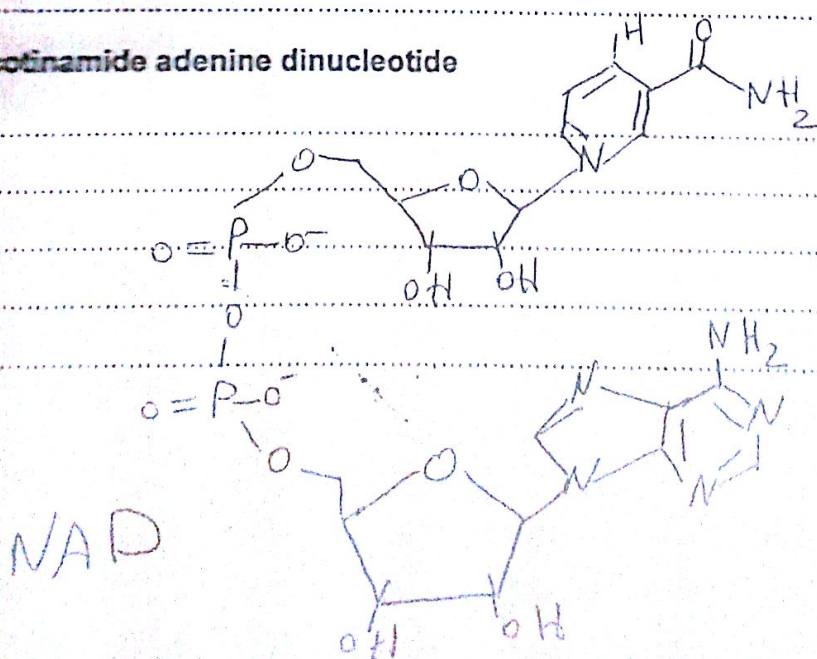 H
O
cotinamide adenine dinucleotide
NH₂
N
O
O
O=P-O⁻
OH
OH
O
NH₂
N
N
O=P-O⁻
O
O
N
N
NAD
OH
OH